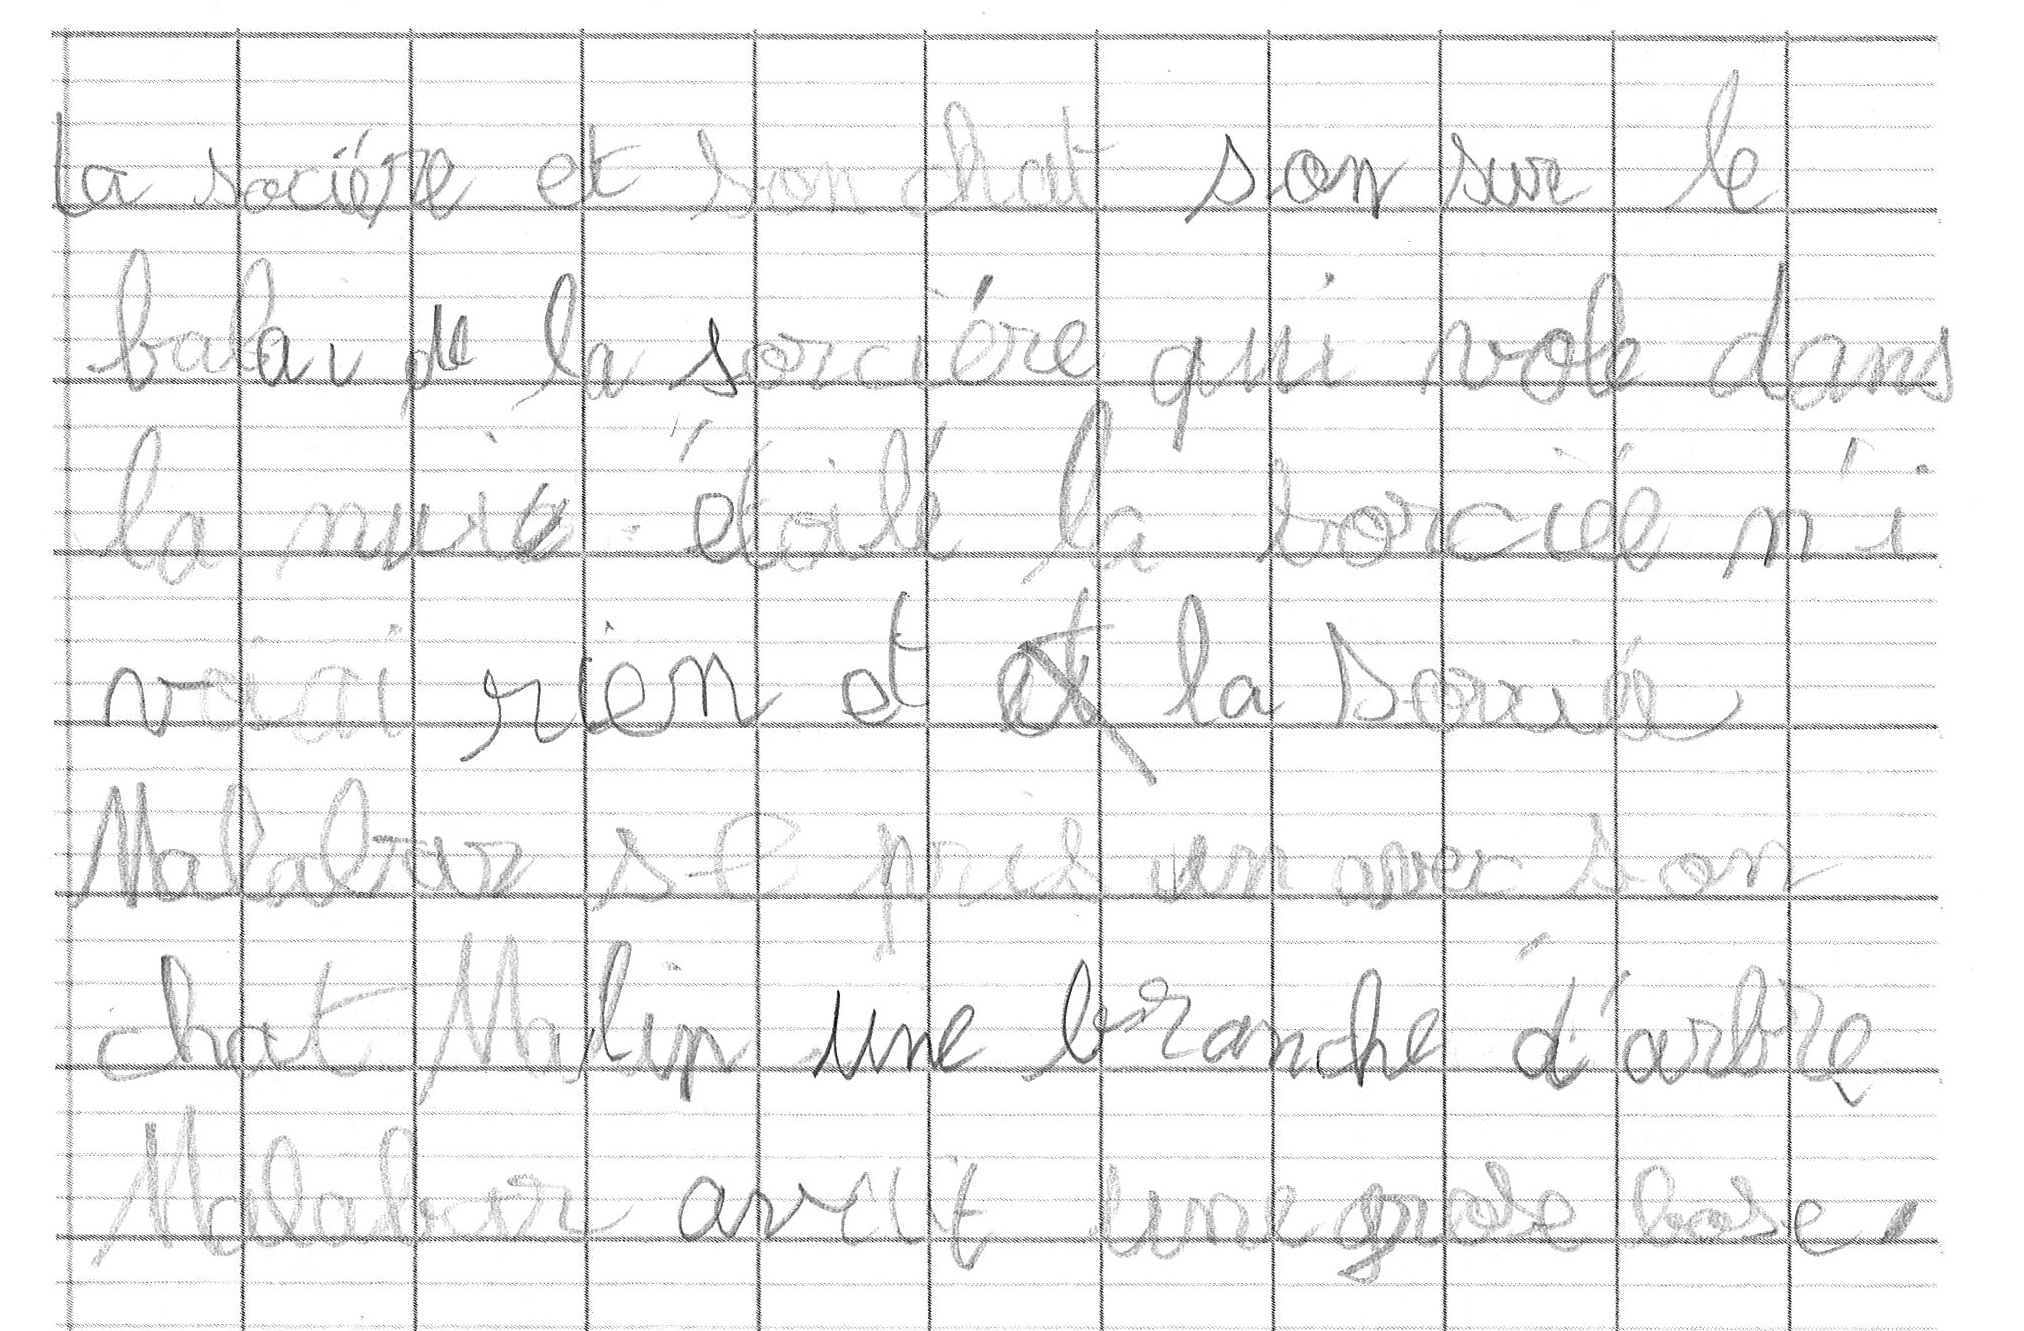 la sociére et son chat son sur le
balai de la sorciére qui vole dans
la nuit étoilé la sorciée n'i
voici rien et la sorciée
Malabar se pris un avec son
chat Malin une branche d'arbre
Malabar avait une grose bose.